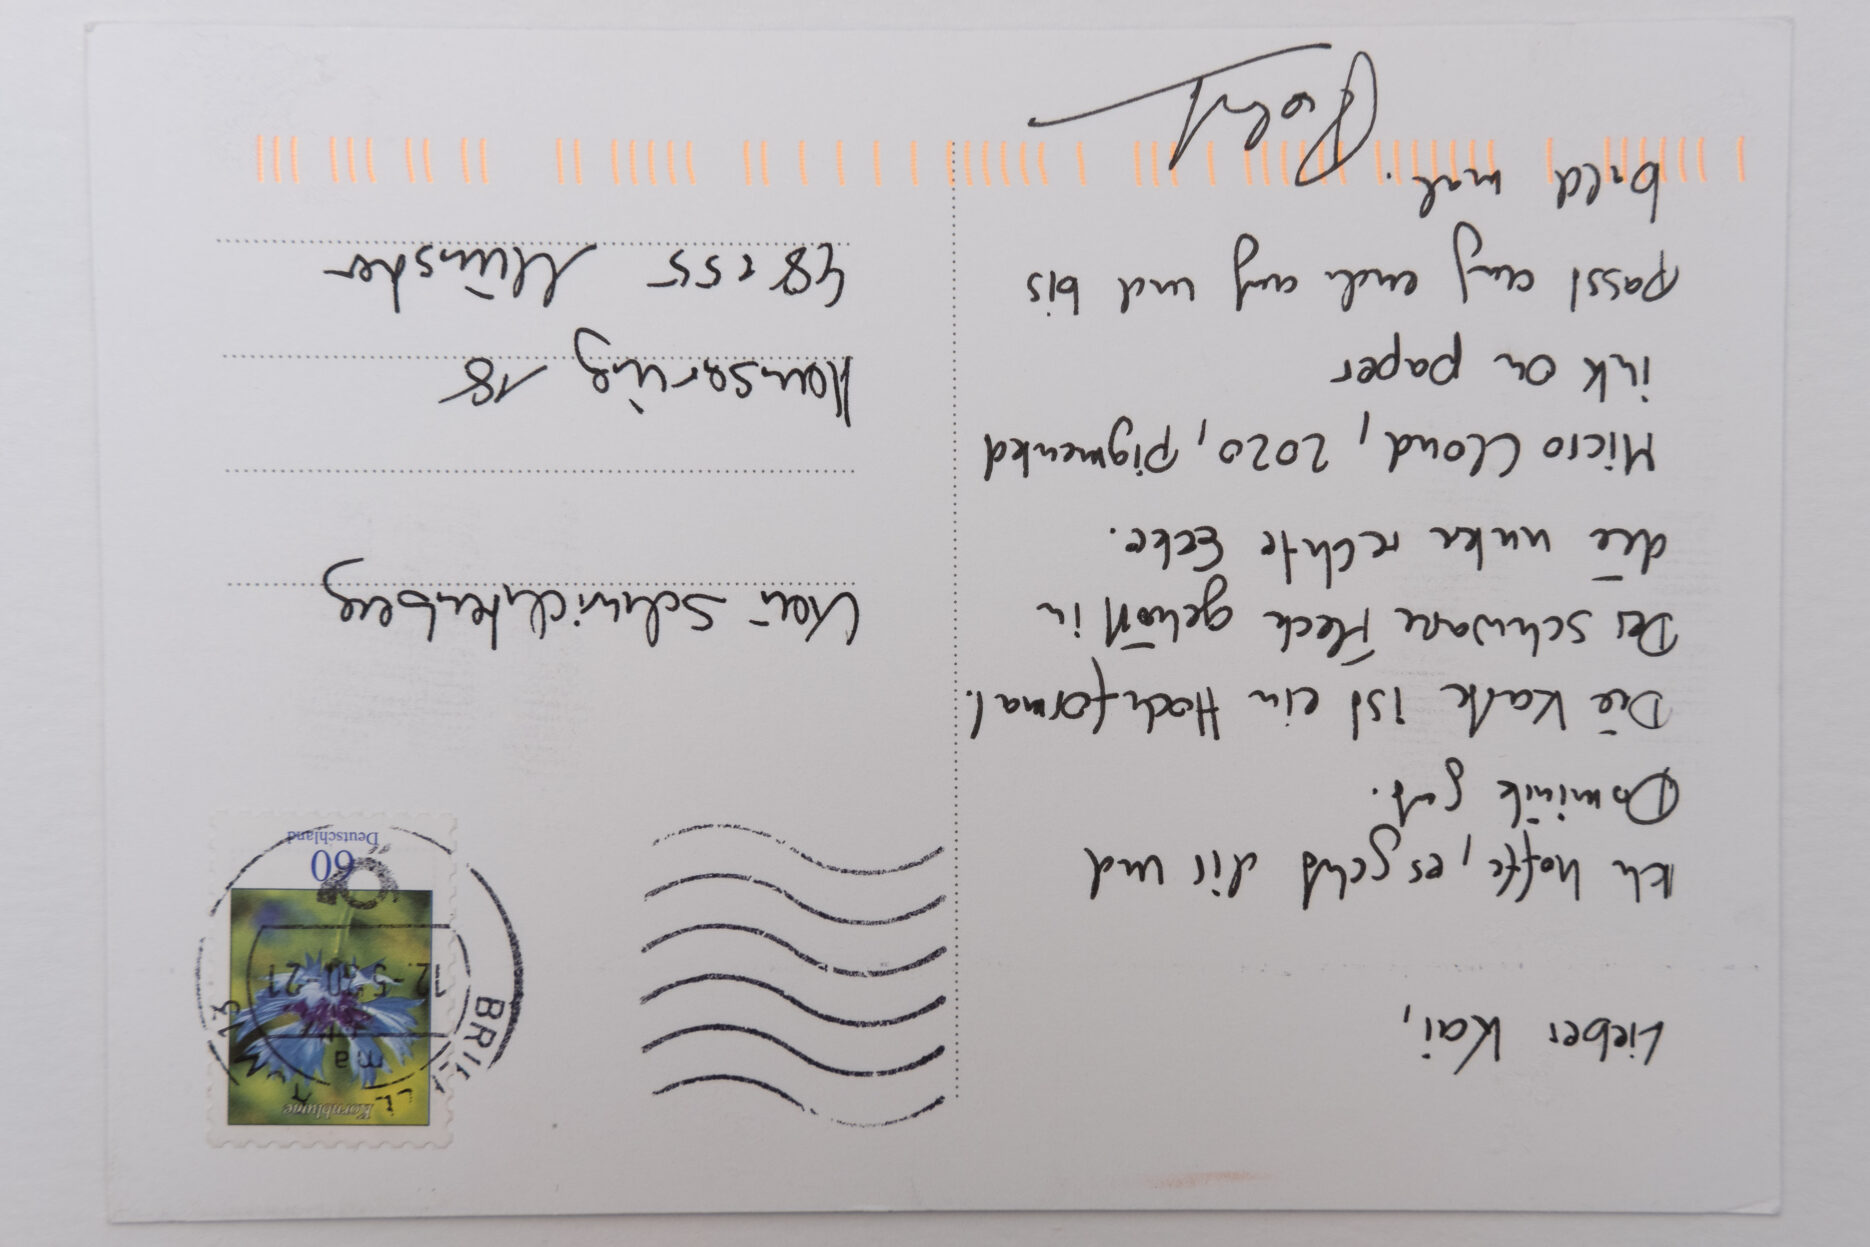 Lieber Kai,
Ich hoffe, es geht dir und
Dominik gut.
Die Karte ist ein Hochformat.
Der schwarze Fleck gehört in
die untere rechte Ecke.
Micro Cloud, 2020, pigmented
ink on paper
passt auf euch auf und bis
bald mal.
Deutschland
60
Kornblume
BRIEF
12.-5.20-21
ma
Kai Schwichtenberg
Hansaring 18
48155 Münster